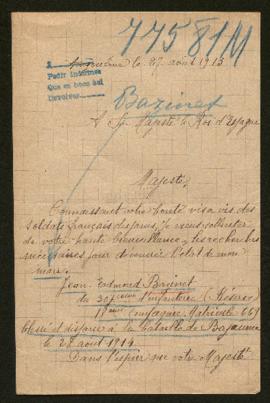 77581M
à
Pedir informes
Que en buen
Devolver
le 27 août 1915
Bazinet
A Sa Majesté le Roi d'Espagne
Majesté
Connaissant votre bonté vis à vis des
soldats français disparus, je viens solliciter
de votre haute bienveillance, les recherches
nécessaires pour découvrir l'état de mon
mari.
Jean Edmond Bazinet
du 307ème d'infanterie (Réserve)
17ème Compagnie, Matricule 669
blessé et disparu à la bataille de Bapaume
le 28 août 1914.
Dans l'espoir que votre Majesté